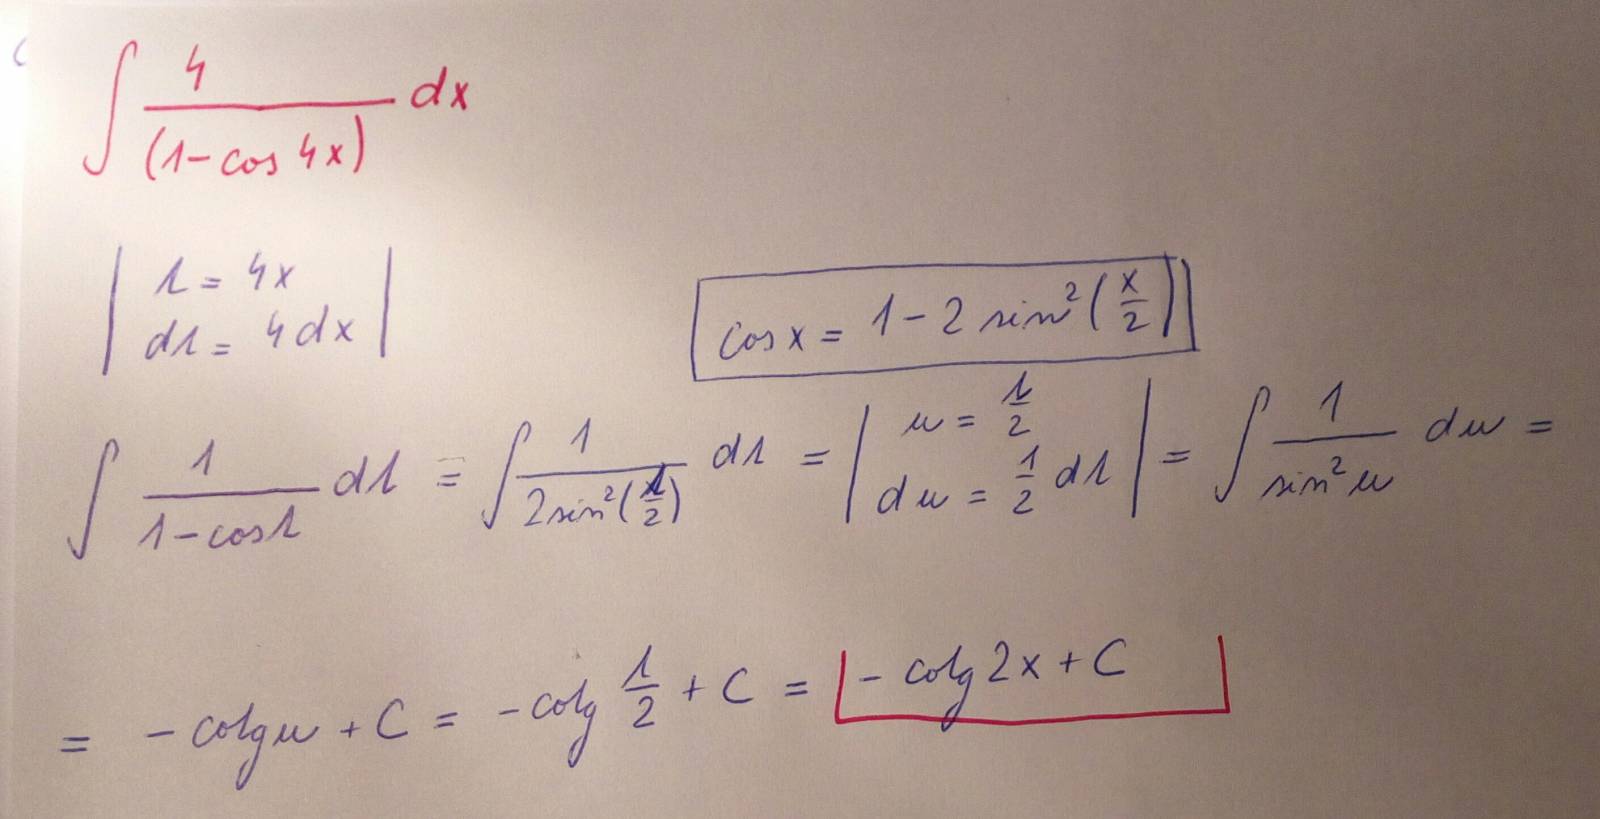 ∫ 4/(1-cos 4x) dx
| t = 4x |
| dt = 4dx |
cos x = 1 - 2 sin²(x/2)
∫ 1/(1-cos t) dt = ∫ 1/(2sin²(t/2)) dt = | u = t/2 du = 1/2 dt | = ∫ 1/(sin² u) du =
= - cotg u + C = - cotg t/2 + C = - cotg 2x + C